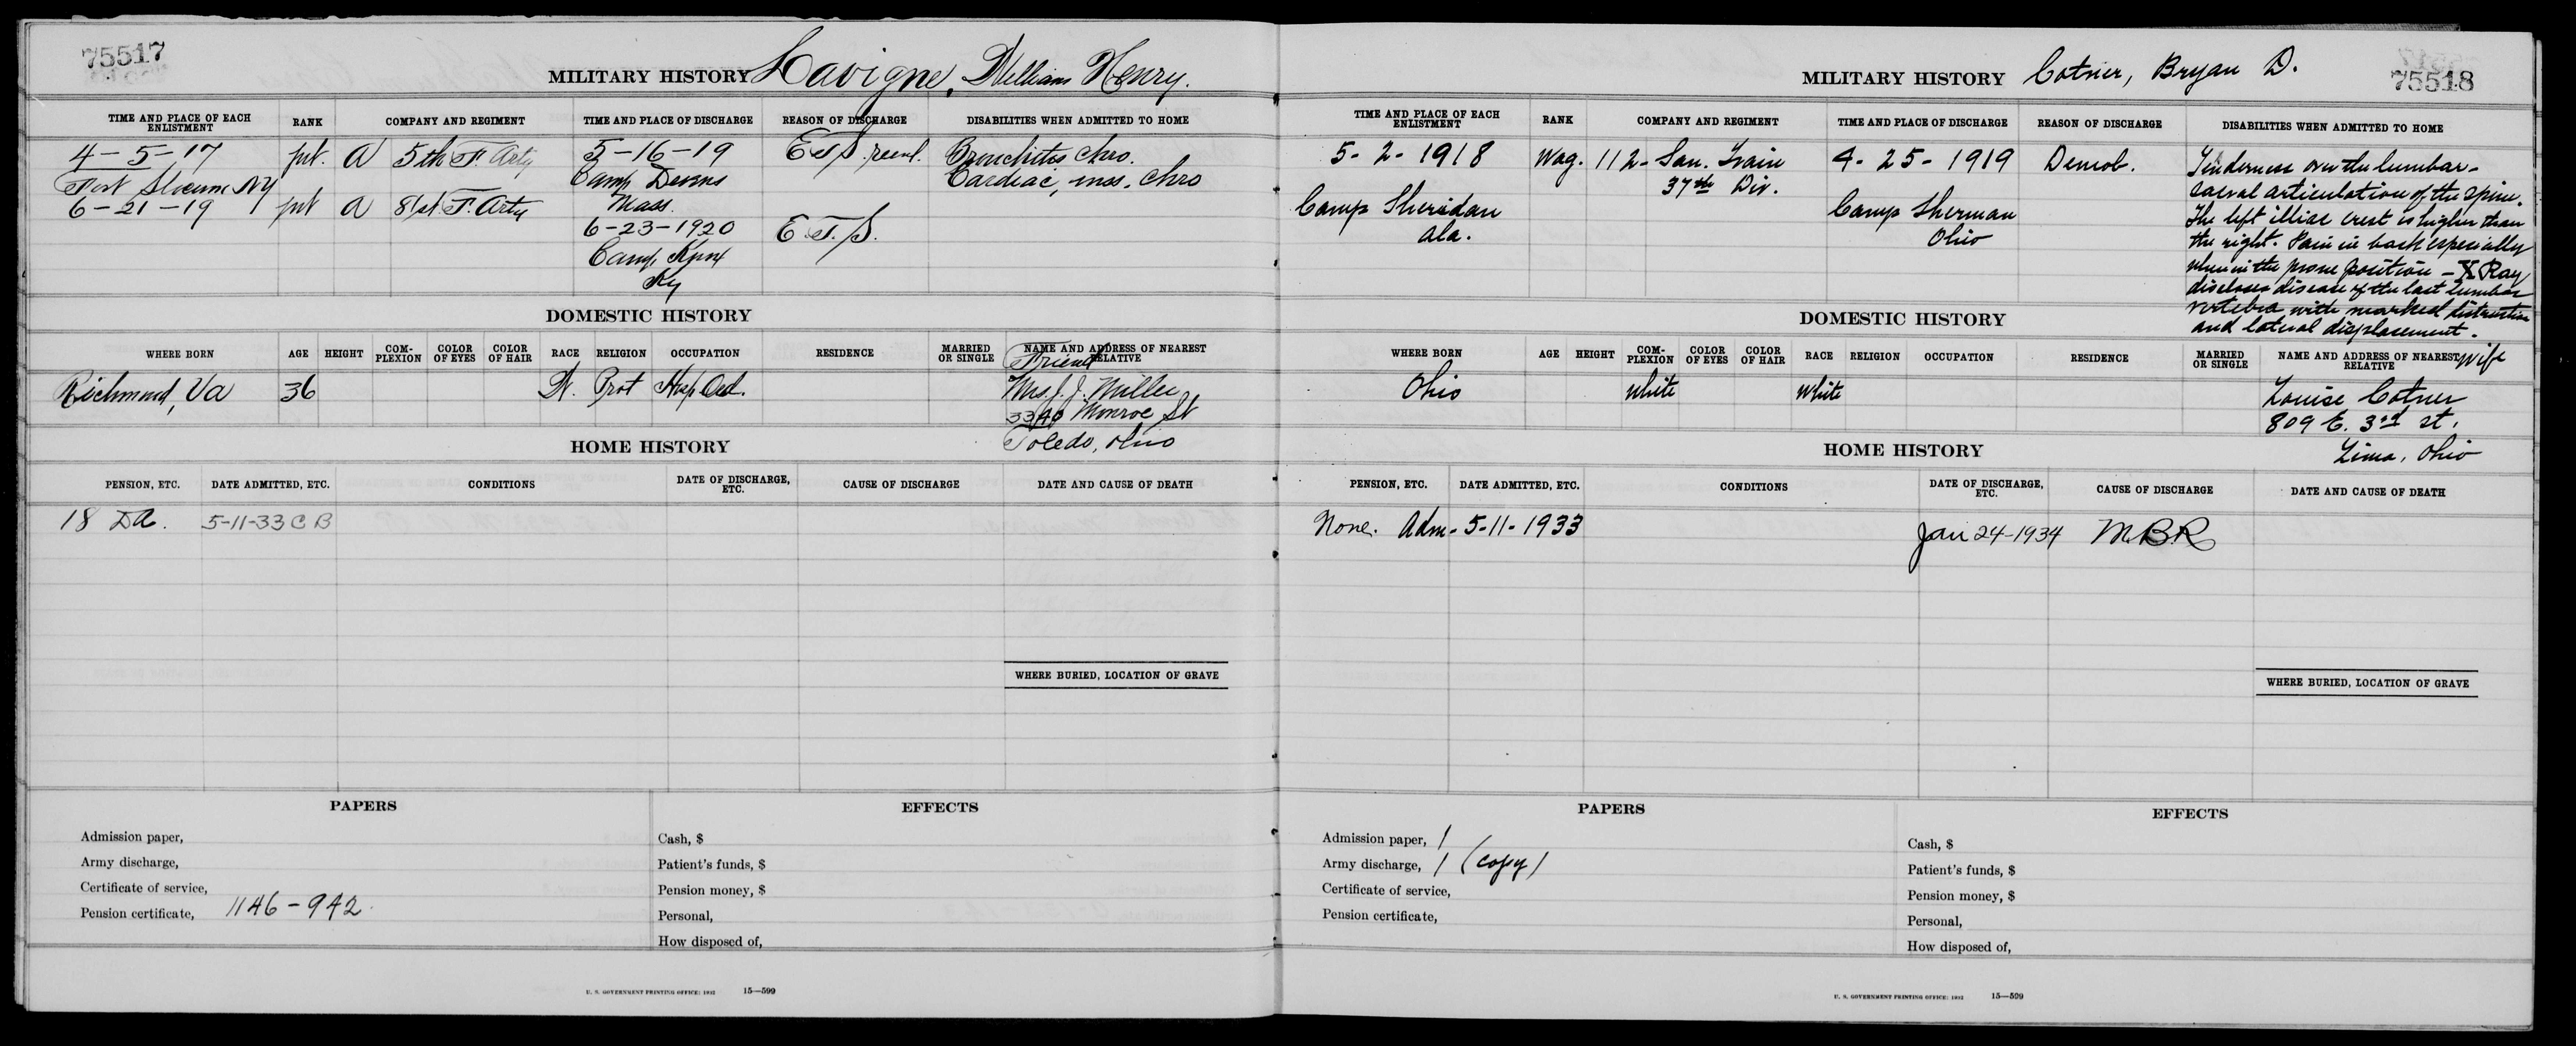 75517
MILITARY HISTORY Lavigne, William Henry.
TIME AND PLACE OF EACH ENLISTMENT RANK COMPANY AND REGIMENT TIME AND PLACE OF DISCHARGE REASON OF DISCHARGE DISABILITIES WHEN ADMITTED TO HOME
4-5-17 pvt. A 5th F. Arty 5-16-19 E.T.S. reenl. Bronchitis chro.
Fort Slocum NY Camp Devens Cardiac, , chro
6-21-19 pvt A 81st F. Arty Mass.
6-23-1920 E.T.S.
Camp Knox
Ky
DOMESTIC HISTORY
WHERE BORN AGE HEIGHT COM-PLEXION COLOR OF EYES COLOR OF HAIR RACE RELIGION OCCUPATION RESIDENCE MARRIED OR SINGLE NAME AND ADDRESS OF NEAREST RELATIVE
Friend
Richmond, Va 36 W. Prot Hosp Ord. Mrs. J. J. Miller
3340 Monroe St
Toledo, Ohio
HOME HISTORY
PENSION, ETC. DATE ADMITTED, ETC. CONDITIONS DATE OF DISCHARGE, ETC. CAUSE OF DISCHARGE DATE AND CAUSE OF DEATH
18 DA. 5-11-33 C B
WHERE BURIED, LOCATION OF GRAVE
PAPERS EFFECTS
Admission paper, Cash, $
Army discharge, Patient's funds, $
Certificate of service, Pension money, $
Pension certificate, 1146-942 Personal,
How disposed of,
U. S. GOVERNMENT PRINTING OFFICE: 1932 15—599
MILITARY HISTORY Cotner, Bryan D.
75518
TIME AND PLACE OF EACH ENLISTMENT RANK COMPANY AND REGIMENT TIME AND PLACE OF DISCHARGE REASON OF DISCHARGE DISABILITIES WHEN ADMITTED TO HOME
5-2-1918 Wag. 112-San. Train 4-25-1919 Demob. Tenderness over the lumbar-
37th Div. sacral articulation of the spine.
Camp Sheridan Camp Sherman The left illiac crest is higher than
Ala. Ohio the right. Pain in back especially
when in the prone position - X Ray
discloses disease of the last lumbar
vertebra with marked distruction
and lateral displacement.
DOMESTIC HISTORY
WHERE BORN AGE HEIGHT COM-PLEXION COLOR OF EYES COLOR OF HAIR RACE RELIGION OCCUPATION RESIDENCE MARRIED OR SINGLE NAME AND ADDRESS OF NEAREST RELATIVE Wife
Ohio White White Louise Cotner
809 E. 3rd St.
Lima, Ohio
HOME HISTORY
PENSION, ETC. DATE ADMITTED, ETC. CONDITIONS DATE OF DISCHARGE, ETC. CAUSE OF DISCHARGE DATE AND CAUSE OF DEATH
None. Adm-5-11-1933 Jan 24-1934 M.B.R
WHERE BURIED, LOCATION OF GRAVE
PAPERS EFFECTS
Admission paper, 1 Cash, $
Army discharge, 1 (copy) Patient's funds, $
Certificate of service, Pension money, $
Pension certificate, Personal,
How disposed of,
U. S. GOVERNMENT PRINTING OFFICE: 1932 15—599